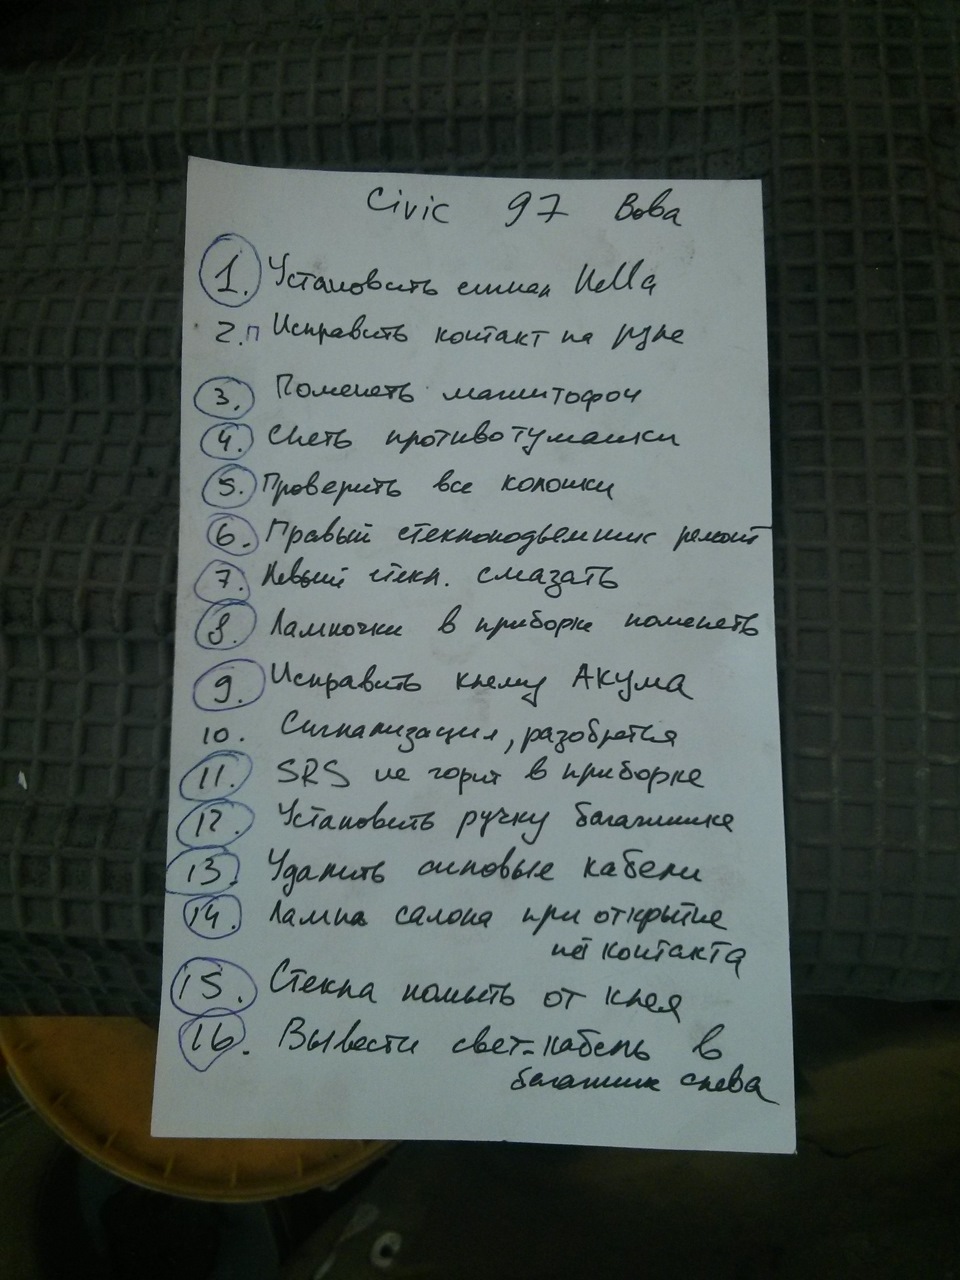 Civic 97 Вова
1. Установить сигнал Hella
2.п Исправить контакт на руле
3. Поменять магнитофон
4. Снять противотуманки
5. Проверить все колонки
6. Правый стеклоподьемник ремонт
7. Левый стекл. смазать
8. Лампочки в приборке поменять
9. Исправить клему Акума
10. Сигнализация, разобраться
11. SRS не горит в приборке
12. Установить ручку багажника
13. Удалить силовые кабели
14. Лампа салона при открытие
нет контакта
15. Стекла помыть от клея
16. Вывести свет-кабель в
багажник слева